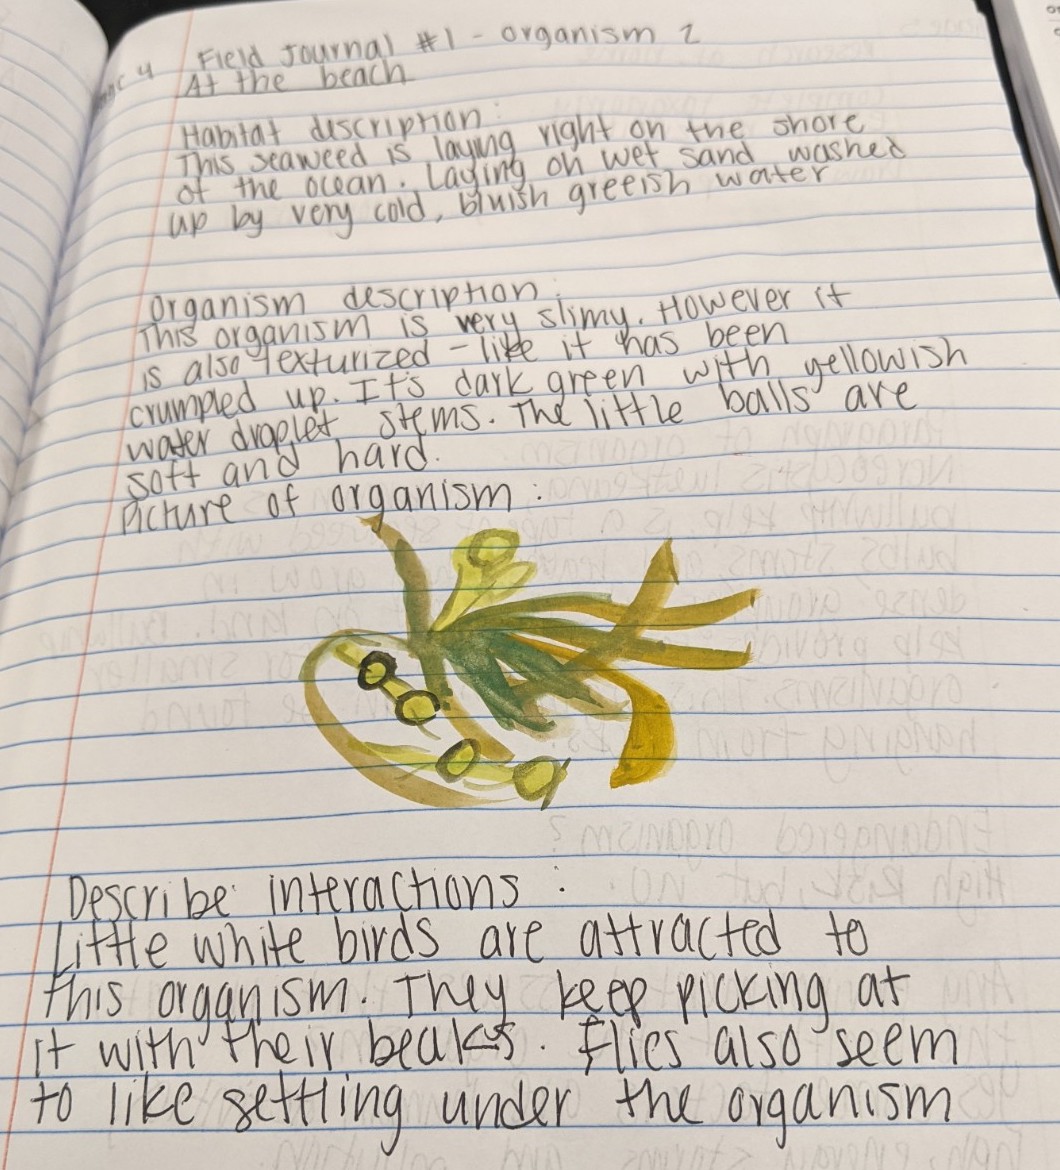 Field Journal #1 - organism 2
At the beach
Habitat description:
This seaweed is laying right on the shore
of the ocean. Laying on wet sand washed
up by very cold, bluish greeish water
organism description:
This organism is very slimy. However it
is also texturized - like it has been
crumpled up. It's dark green with yellowish
water droplet stems. The little balls are
soft and hard.
Picture of organism:
Describe interactions:
Little white birds are attracted to
this organism. They keep picking at
it with their beaks. Flies also seem
to like settling under the organism